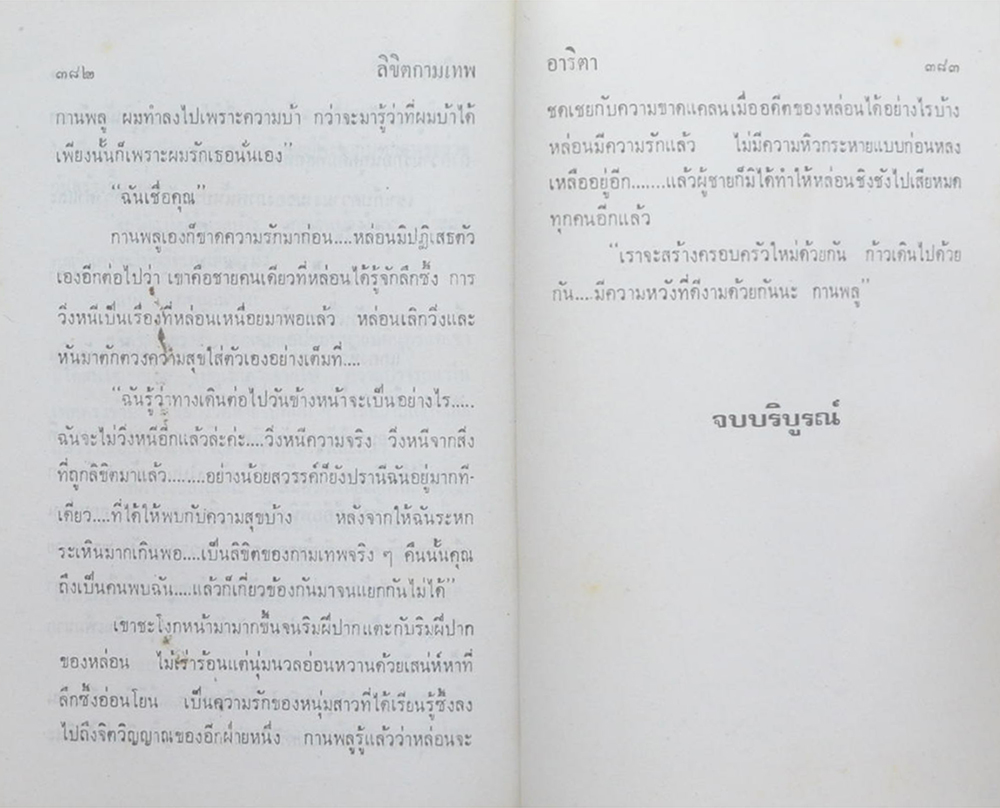 ๓๘๒ ลิขิตกามเทพ
กานพลู ผมทำลงไปเพราะความบ้า กว่าจะมารู้ว่าที่ผมบ้าได้
เพียงนั้นก็เพราะผมรักเธอนั่นเอง”
“ฉันเชื่อคุณ”
กานพลูเองก็ขาดความรักมาก่อน....หล่อนมิปฏิเสธตัว
เองอีกต่อไปว่า เขาคือชายคนเดียวที่หล่อนได้รู้จักลึกซึ้ง การ
วิ่งหนีเป็นเรื่องที่หล่อนเหนื่อยมาพอแล้ว หล่อนเลิกวิ่งและ
หันมาตักตวงความสุขใส่ตัวเองอย่างเต็มที่....
“ฉันรู้ว่าทางเดินต่อไปวันข้างหน้าจะเป็นอย่างไร.....
ฉันจะไม่วิ่งหนีอีกแล้วล่ะค่ะ....วิ่งหนีความจริง วิ่งหนีจากสิ่ง
ที่ถูกลิขิตมาแล้ว........อย่างน้อยสวรรค์ก็ยังปรานีฉันอยู่มากที-
เดียว....ที่ได้ให้พบกับความสุขบ้าง หลังจากให้ฉันระหก
ระเหินมากเกินพอ....เป็นลิขิตของกามเทพจริง ๆ คืนนั้นคุณ
ถึงเป็นคนพบฉัน....แล้วก็เกี่ยวข้องกันมาจนแยกกันไม่ได้”
เขาชะโงกหน้ามามากขึ้นจนริมฝีปากแตะกับริมฝีปาก
ของหล่อน ไม่เร่าร้อนแต่นุ่มนวลอ่อนหวานด้วยเสน่ห์หาที่
ลึกซึ้งอ่อนโยน เป็นความรักของหนุ่มสาวที่ได้เรียนรู้ซึ้งลง
ไปถึงจิตวิญญาณของอีกฝ่ายหนึ่ง กานพลูรู้แล้วว่าหล่อนจะ
อาริตา ๓๘๓
ชดเชยกับความขาดแคลนเมื่ออดีตของหล่อนได้อย่างไรบ้าง
หล่อนมีความรักแล้ว ไม่มีความหิวกระหายแบบก่อนหลง
เหลืออยู่อีก.......แล้วผู้ชายก็มิได้ทำให้หล่อนชิงชังไปเสียหมด
ทุกคนอีกแล้ว
“เราจะสร้างครอบครัวใหม่ด้วยกัน ก้าวเดินไปด้วย
กัน....มีความหวังที่ดีงามด้วยกันนะ กานพลู”
จบบริบูรณ์